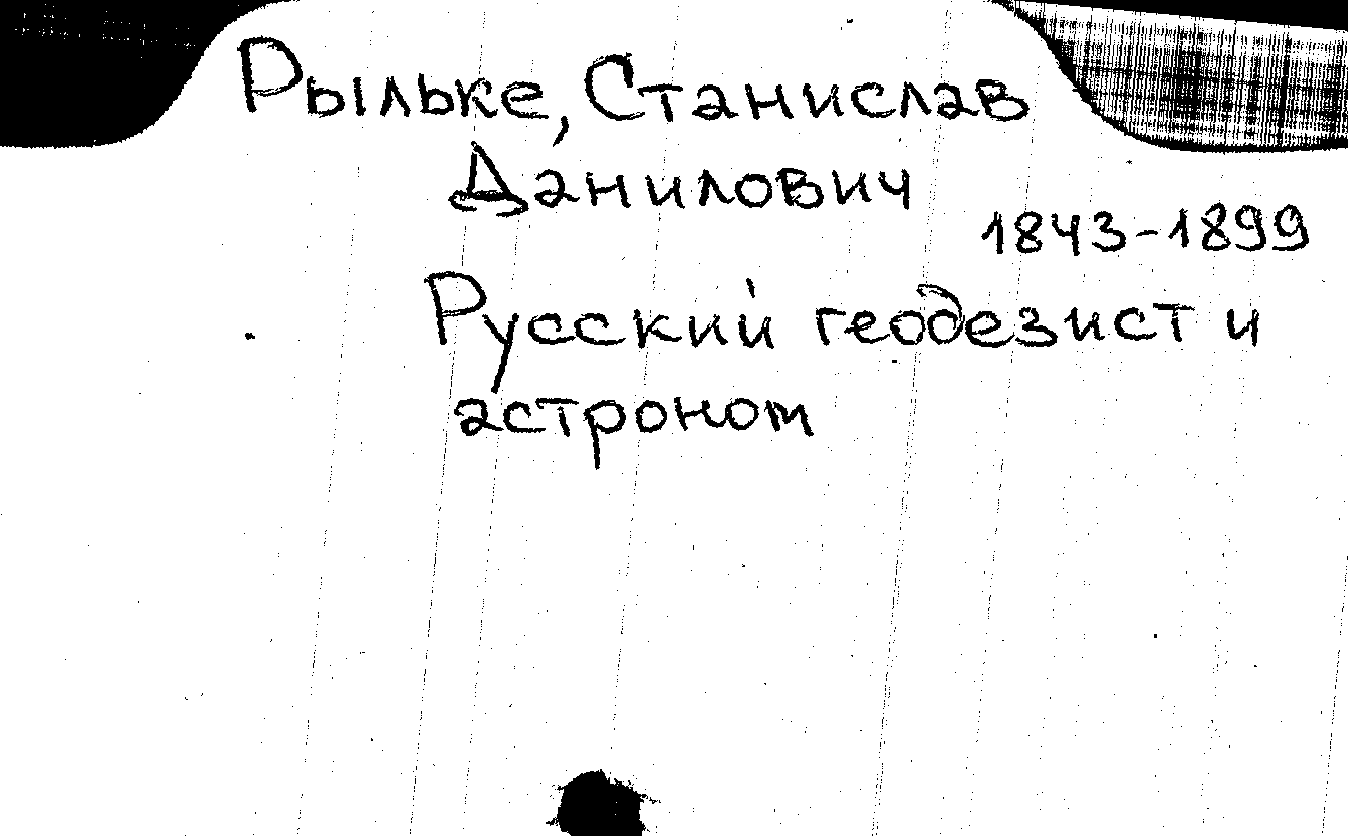 Рыльке, Станислав
Данилович
1843-1899
Русский геодезист и
астроном